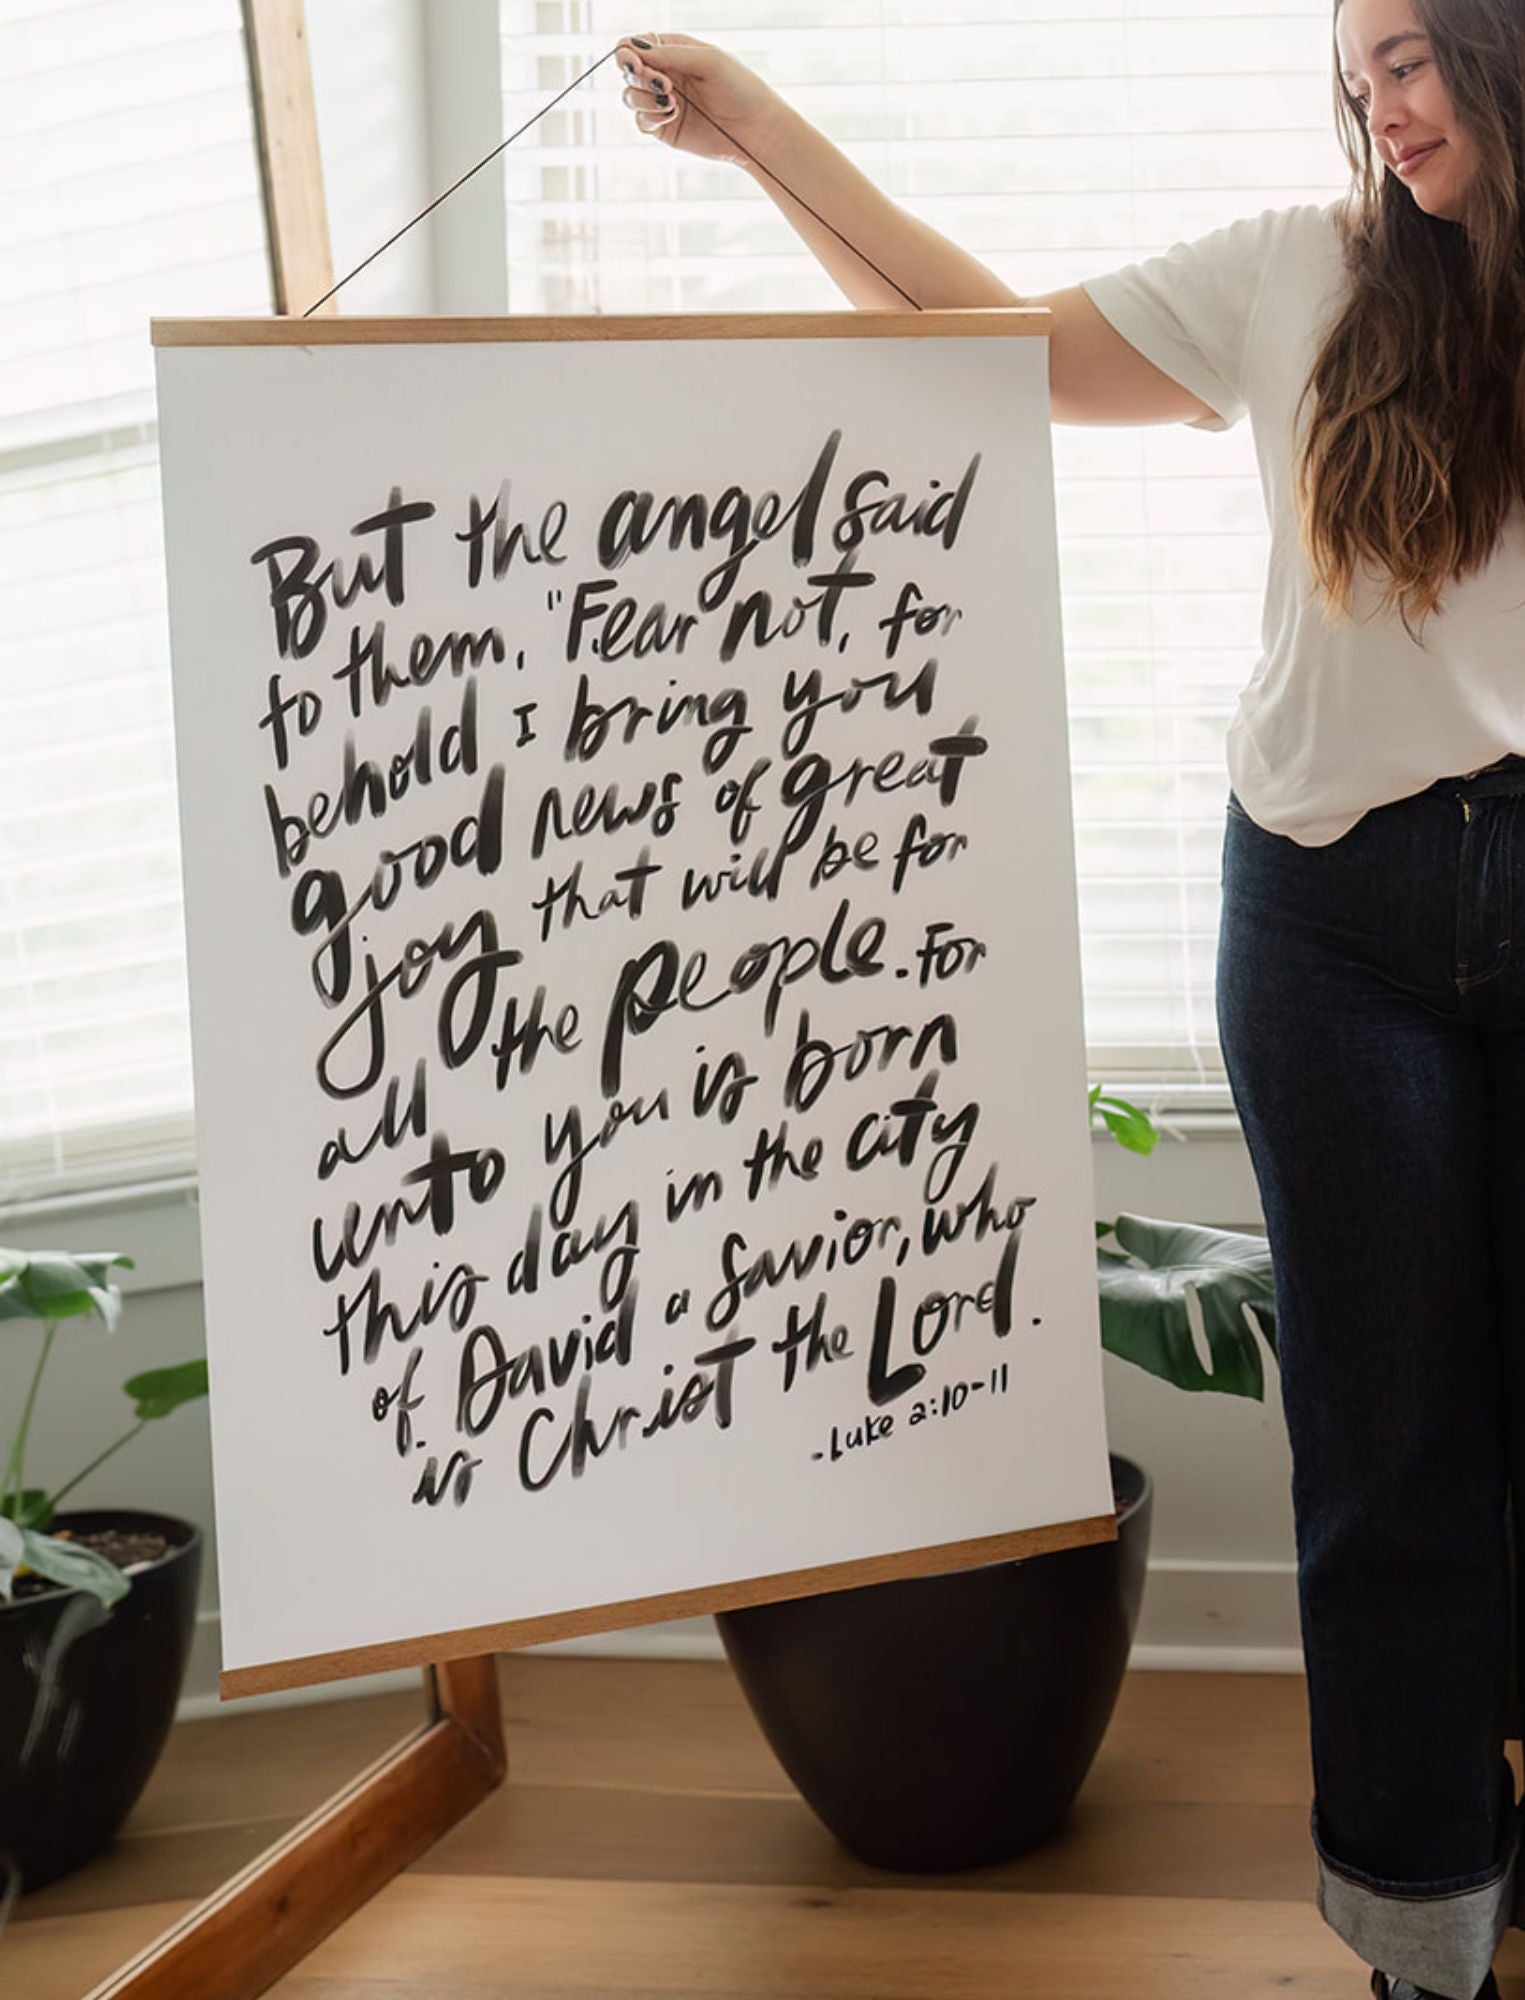 But the angel said
to them, "Fear not, for
behold I bring you
good news of great
joy that will be for
all the people. For
unto you is born
this day in the city
of David a Savior, who
is Christ the Lord.
-Luke 2:10-11